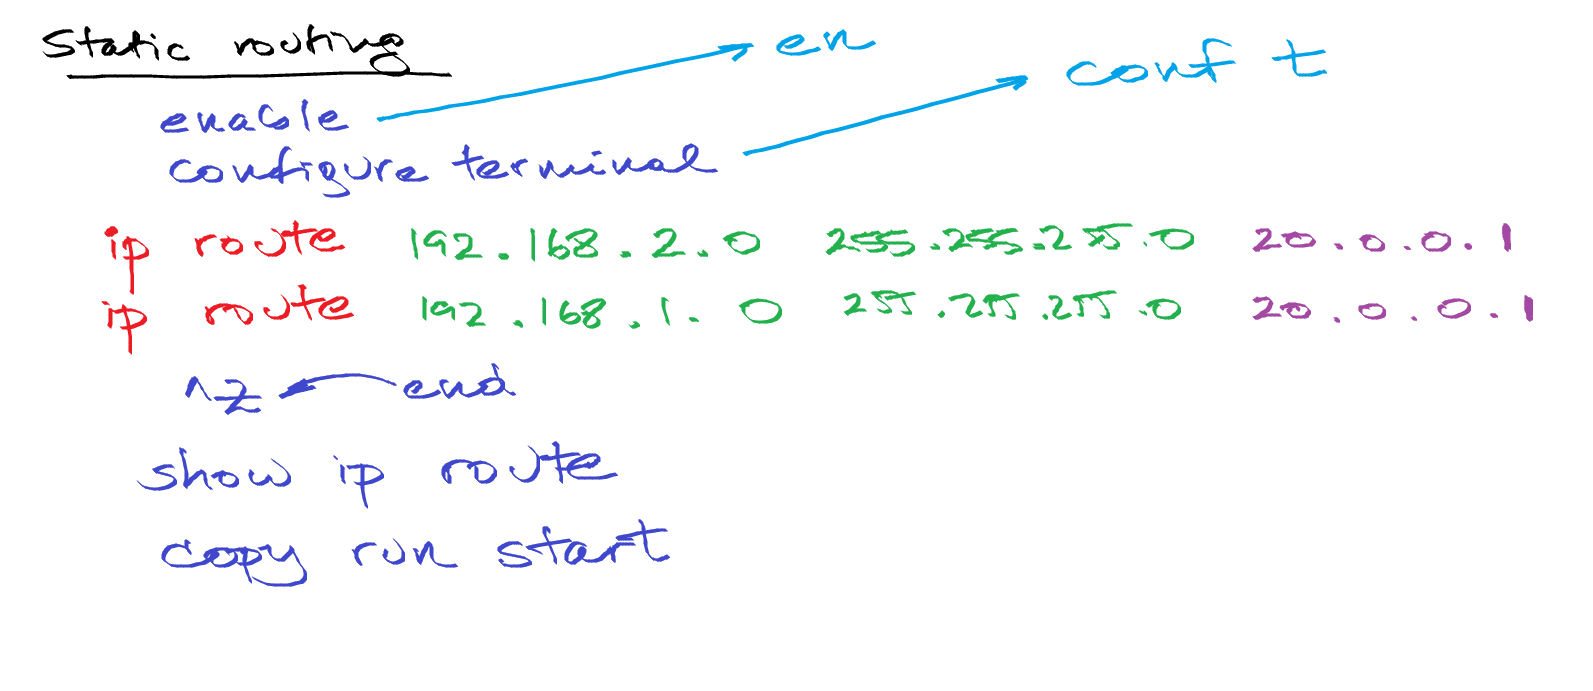 Static routing
enable → en
configure terminal → conf t
ip route 192.168.2.0 255.255.255.0 20.0.0.1
ip route 192.168.1.0 255.255.255.0 20.0.0.1
^z ← end
show ip route
copy run start